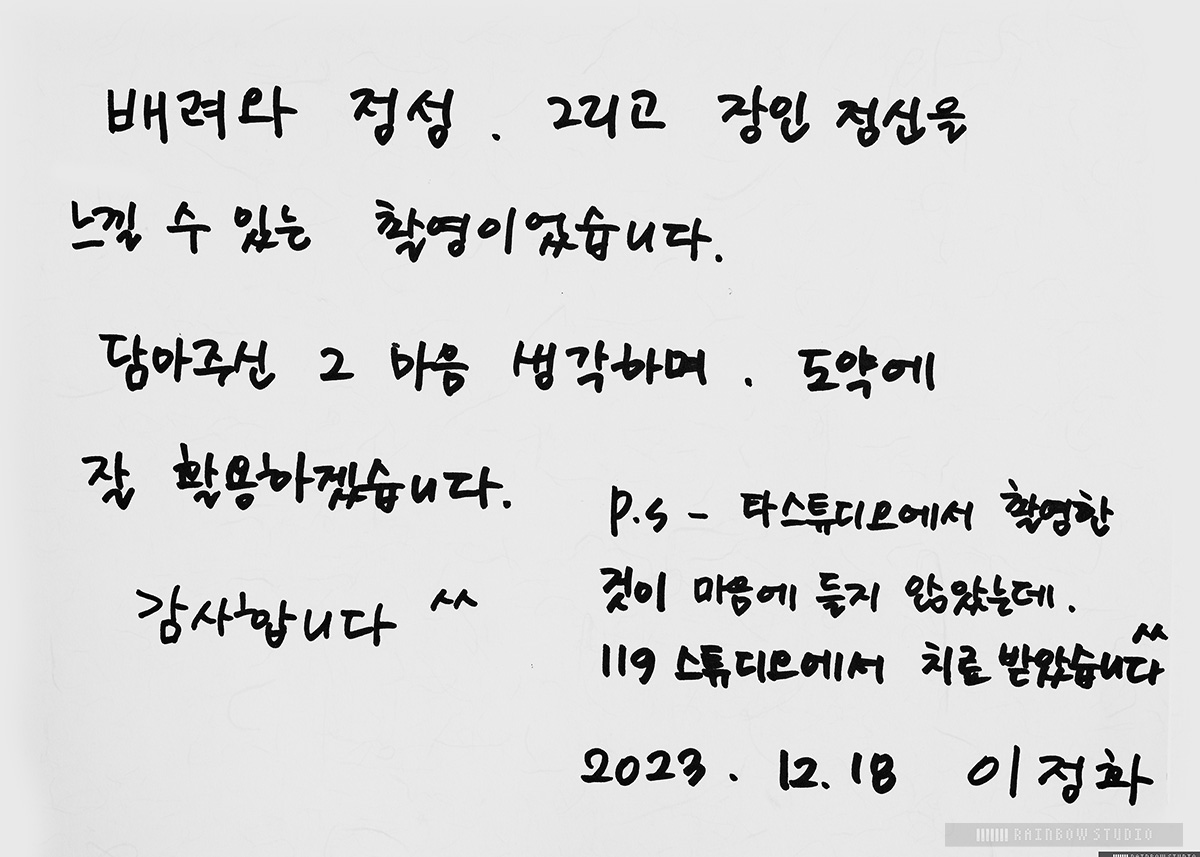 배려와 정성. 그리고 장인 정신을
느낄 수 있는 촬영이었습니다.
담아주신 그 마음 생각하며. 도약에
잘 활용하겠습니다.
감사합니다 ^^
P.S - 타스튜디오에서 촬영한
것이 마음에 들지 않았는데.
119 스튜디오에서 치료 받았습니다 ^^
2023. 12. 18 이정화
RAINBOW STUDIO
RAINBOW STUDIO